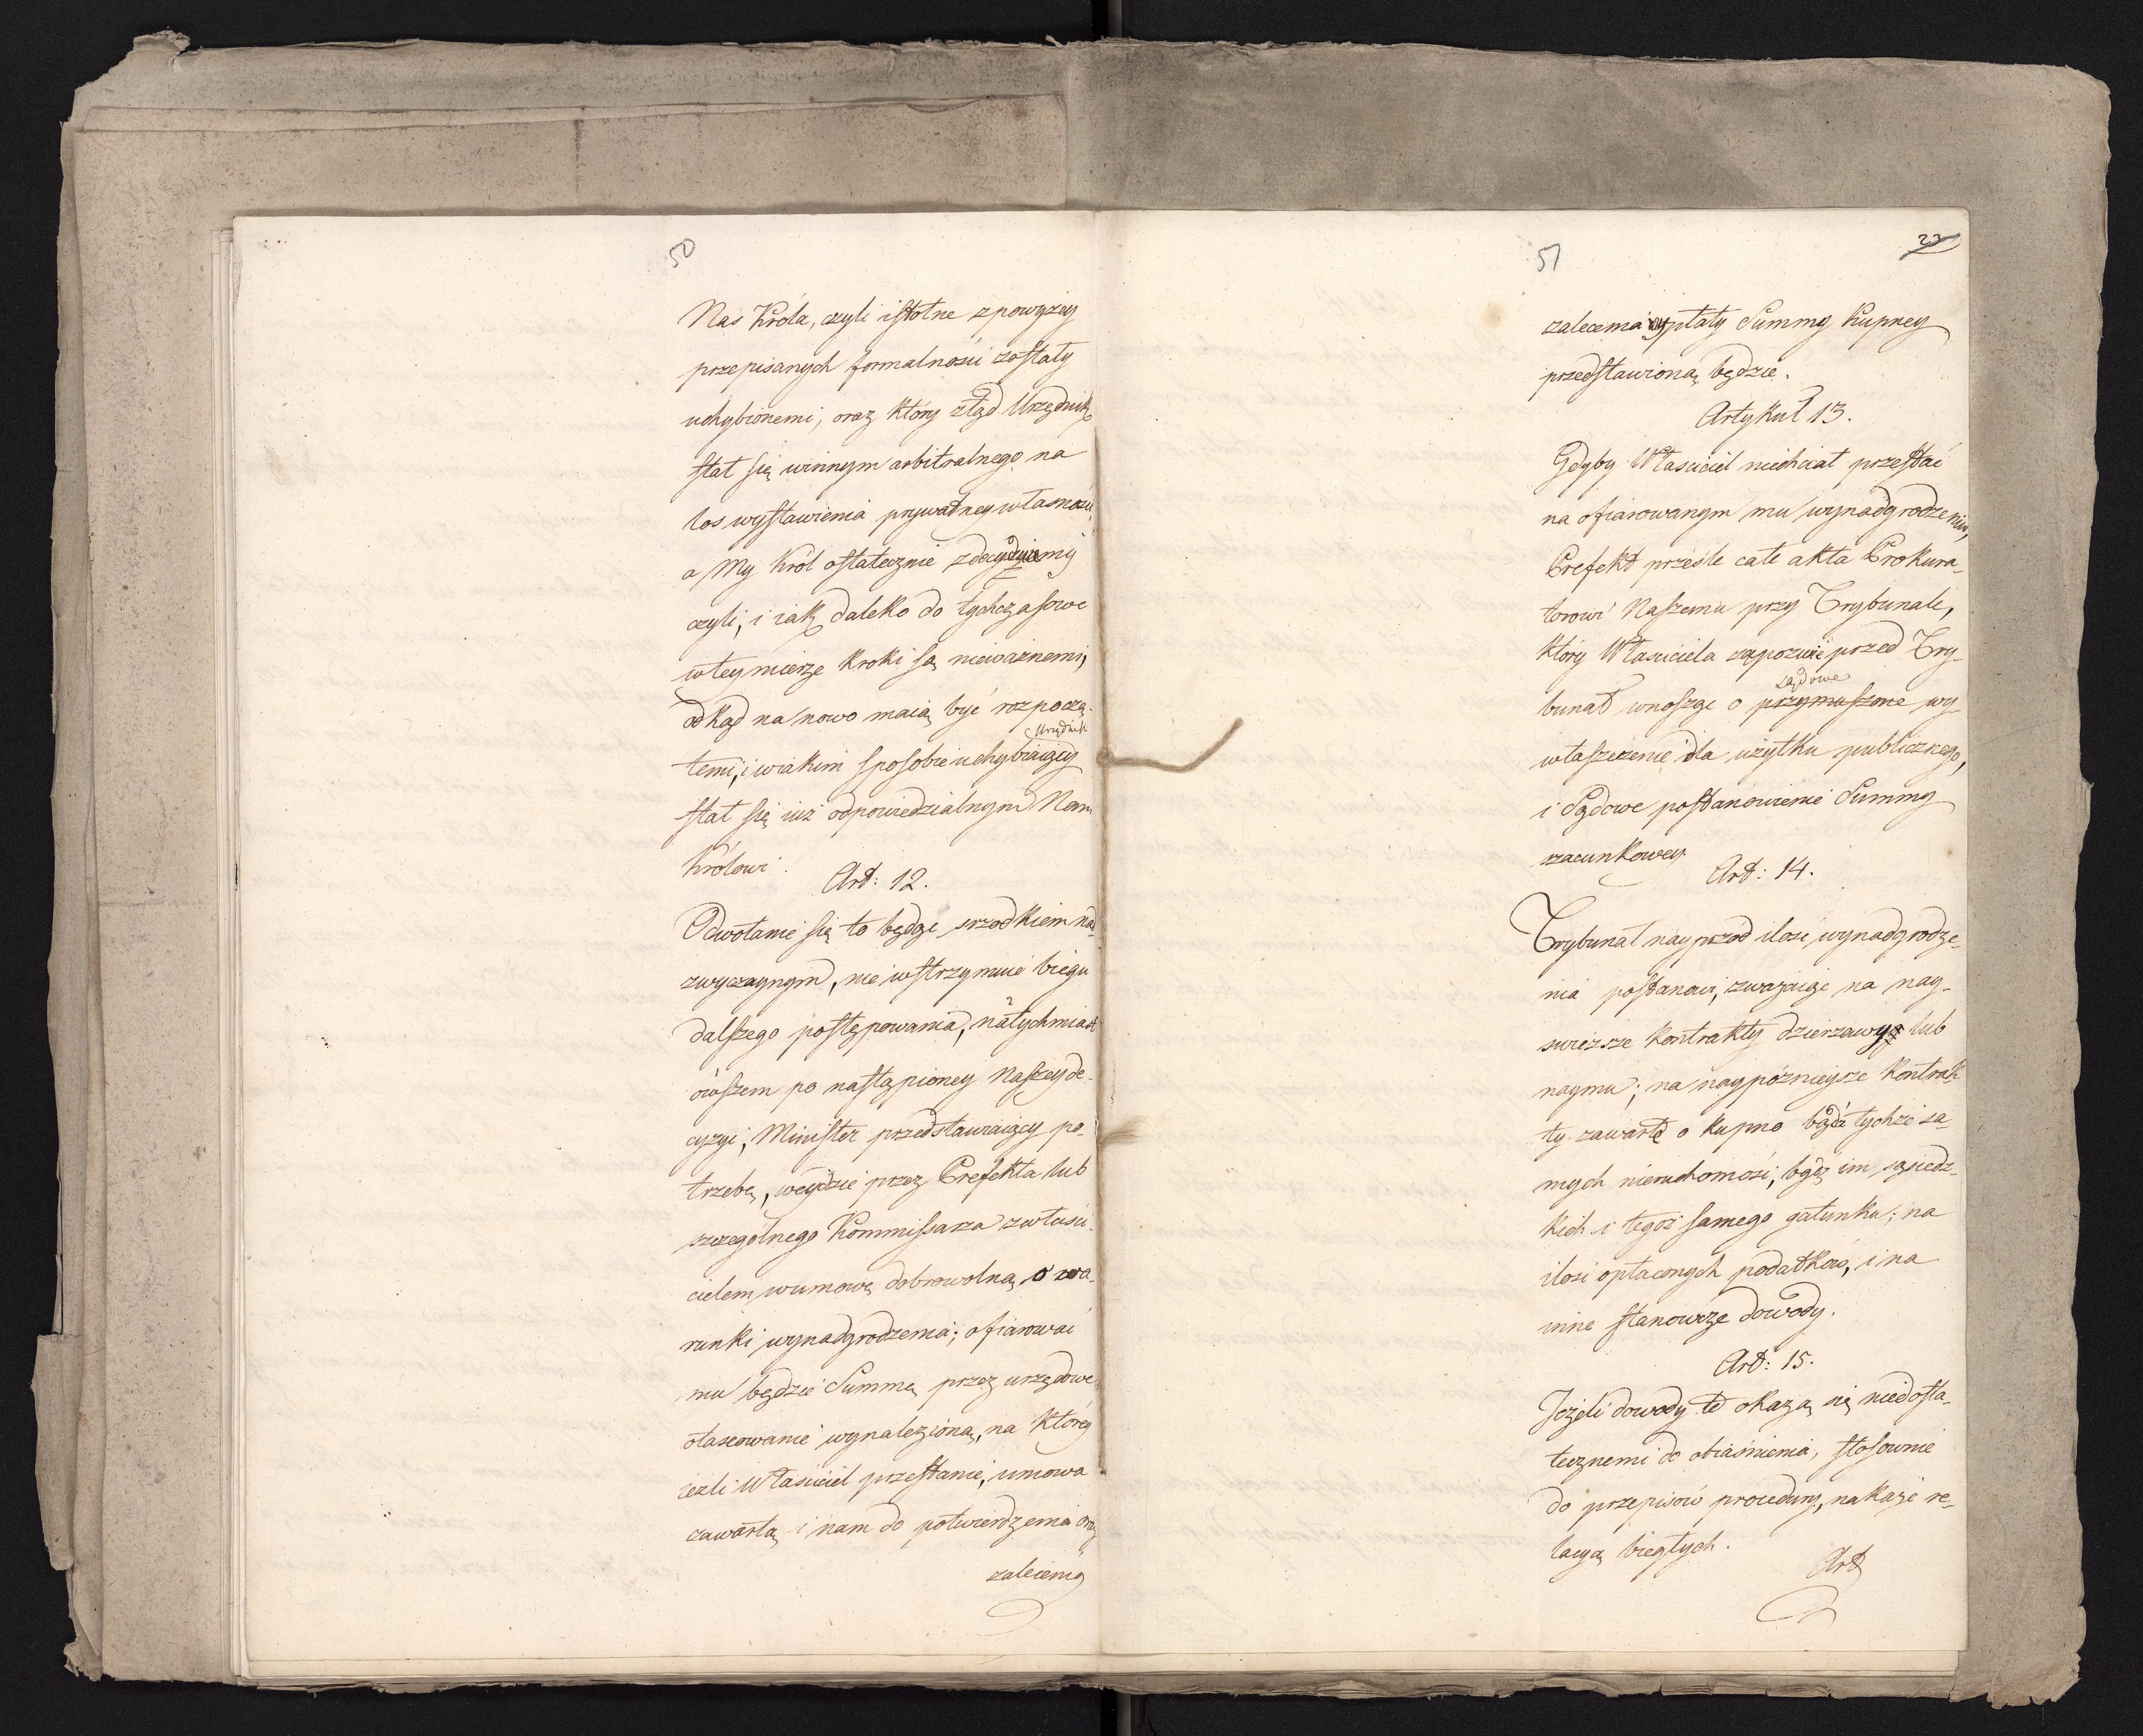 50
Nas Króla, czyli istotne z powyzey
przepisanych formalności zostały
uchybionemi, oraz który ztąd Urzędnik
stał się winnym arbitralnego na
los wystawienia prywatney własności,
a My Król ostatecznie zdecyduiemy
czyli, i iak daleko do tychczasowe
w tey mierze kroki są nieważnemi,
odkąd na nowo maią być rozpoczą-
Urzędnik
temi, i w iakim sposobie uchybiaiący
stał się iuż odpowiedzialnym Nam
Królowi.
Art: 12.
Odwołanie się to będąc srzodkiem nad-
zwyczaynym, nie wstrzymuie biegu
dalszego postępowania, natychmiast
owszem po nastąpioney Naszey de-
cyzyi, Minister przedstawiaiący po-
trzebę, weydzie przez Prefekta lub
szczególnego Kommissarza z właści-
cielem w umowę dobrowolną o wa-
runki wynadgrodzenia; ofiarować
mu będzie Summę przez urzędowe
otaxowanie wynalezioną, na którey
ieżli Właściciel przestanie, umowa
zawartą i nam do potwierdzenia oraz
zalecenia
51
23
zalecenia wypłaty Summy Kupney
przedstawioną będzie.
Artykuł 13.
Gdyby Właściciel niechciał przestać
na ofiarowanym mu wynadgrodzeniu,
Prefekt prześle całe akta Prokura-
torowi Naszemu przy Trybunale,
który Właściciela zapozwie przed Try-
sądowe
bunał wnosząc o przymuszone wy-
właszczenie dla użytku publicznego,
i Sądowe postanowienie Summy
szacunkowey.
Art: 14.
Trybunał nayprzod ilość wynadgrodze-
nia postanowi, zważaiąc na nay-
swieższe kontrakty dzierzawy lub
naymu; na naypóźnieysze kontrak-
ty zawarte o kupno bądź tychże sa-
mych nieruchomości, bądź im sąsiedz-
kich i tegoż samego gatunku; na
ilość opłaconych podatków, i na
inne stanowcze dowody.
Art: 15.
Jeżeli dowody te okażą się niedosta-
tecznemi do obiaśnienia, stosownie
do przepisów procedury, nakaże re-
lacyą biegłych.
Art